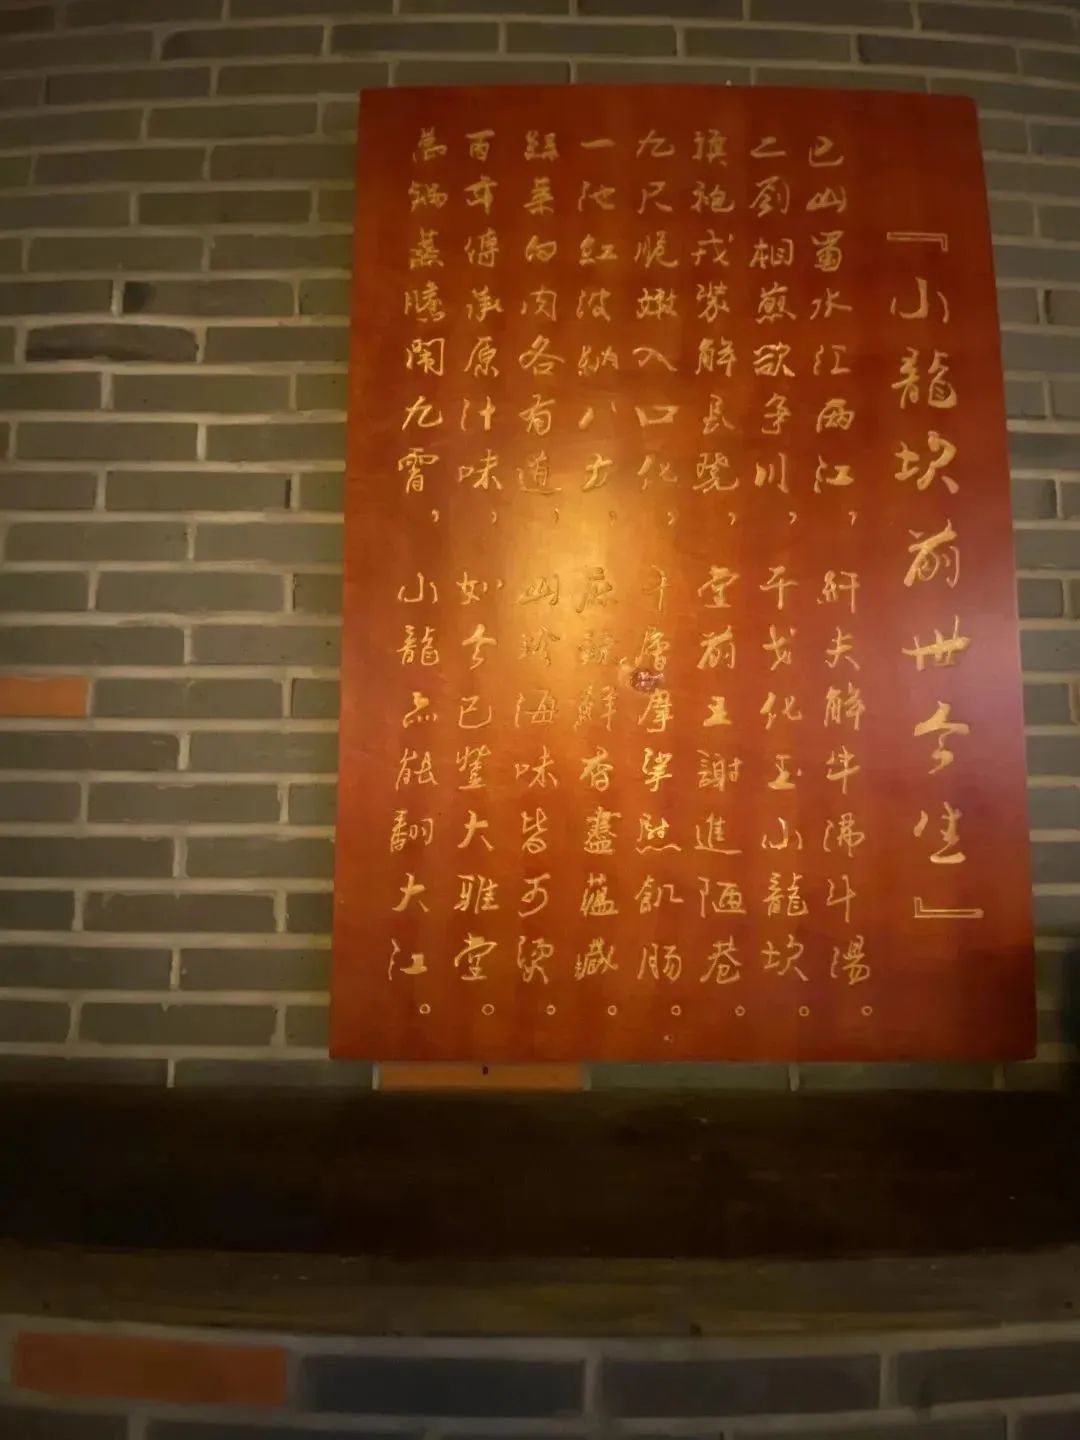 『小龍坎前世今生』
巴山蜀水江两江，纤夫解牛沸斗湯。
二刘相煎欲争川，干戈化玉小龍坎。
换袍戎装解長凳，堂前王謝進陋巷。
九尺脆嫩入口化，千層摩挲慰飢肠。
一池红波納八方，麻辣鮮香盡蕴藏。
绿菜白肉各有道，山珍海味皆可烫。
百年傳承原汁味，如今已登大雅堂。
萬锅蒸腾鬧九霄，小龍亦能翻大江。